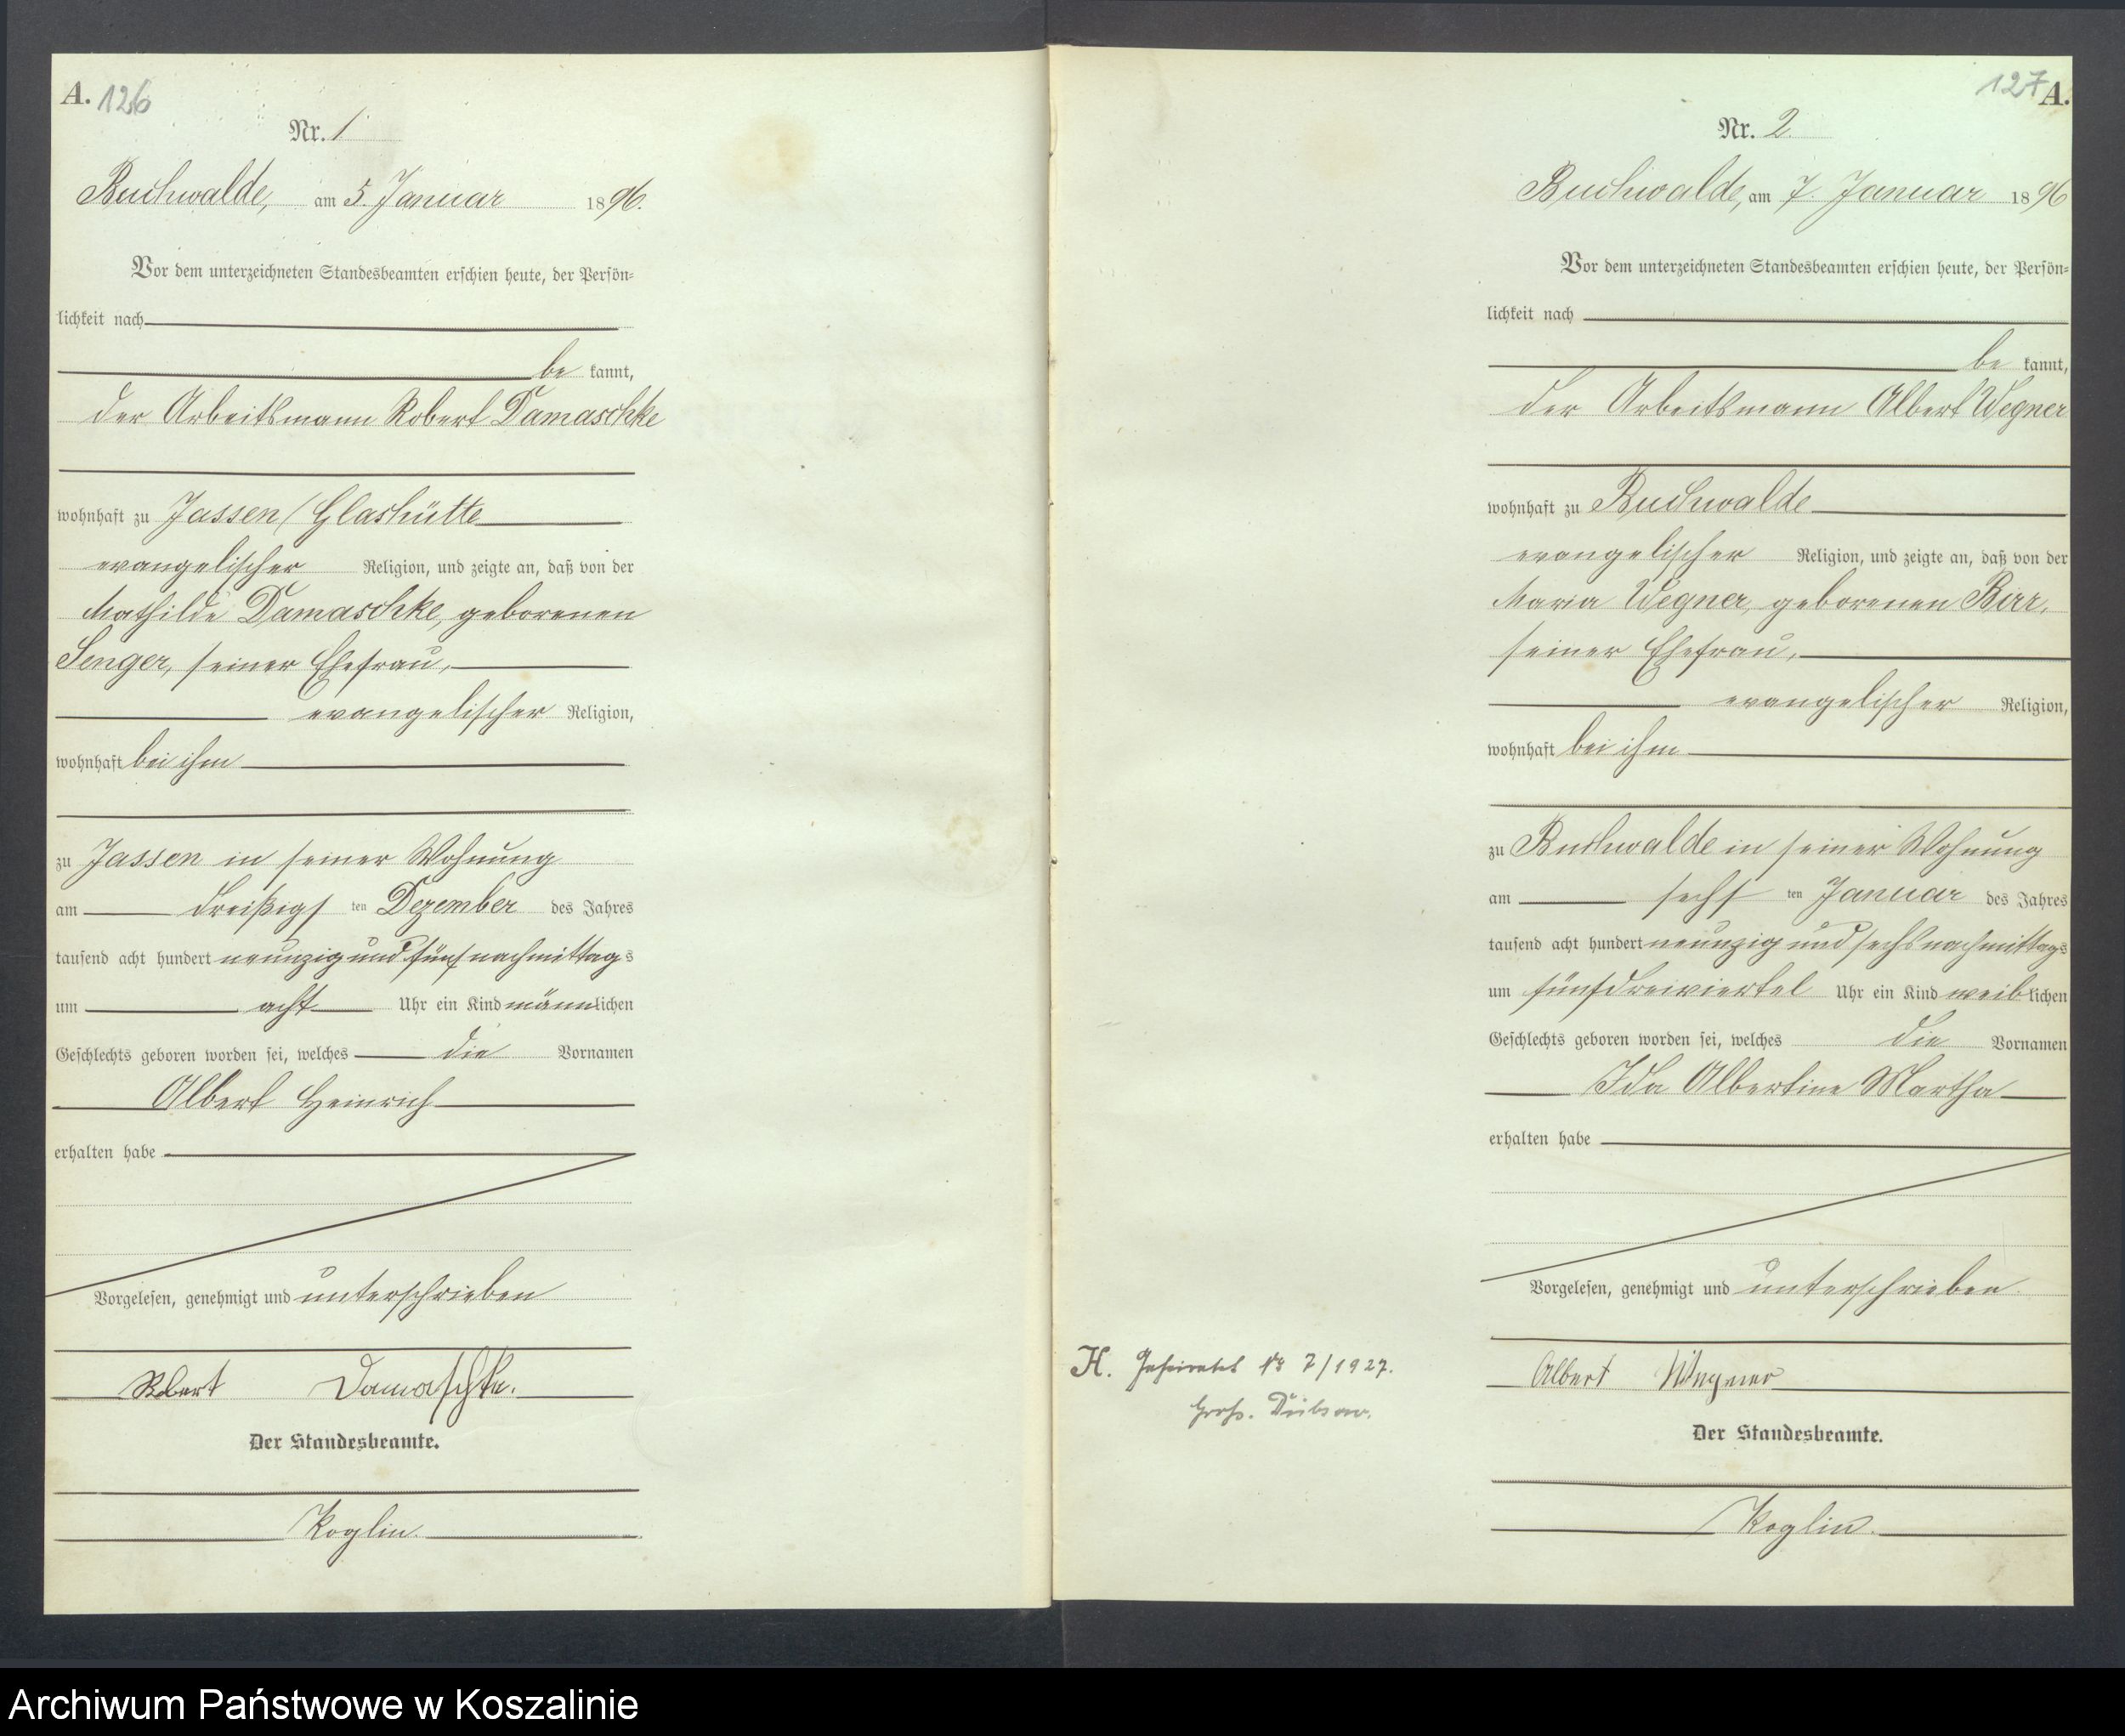 A. 126
Nr. 1
Buchwalde, am 5. Januar 1896.
Vor dem unterzeichneten Standesbeamten erschien heute, der Persön-
lichkeit nach
be kannt,
der Arbeitsmann Robert Damaschke
wohnhaft zu Jassen / Glashütte
evangelischer Religion, und zeigte an, daß von der
Mathilde Damaschke, geborenen
Senger, seiner Ehefrau,
evangelischer Religion,
wohnhaft bei ihm
zu Jassen in seiner Wohnung
am dreißigs ten Dezember des Jahres
tausend acht hundert neunzig und fünf nachmittags
um acht Uhr ein Kind männlichen
Geschlechts geboren worden sei, welches die Vornamen
Albert Heinrich
erhalten habe
Vorgelesen, genehmigt und unterschrieben
Robert Damaschke.
Der Standesbeamte.
Koglin.
127 A.
Nr. 2.
Buchwalde, am 7. Januar 1896
Vor dem unterzeichneten Standesbeamten erschien heute, der Persön-
lichkeit nach
be kannt,
der Arbeitsmann Albert Wegner
wohnhaft zu Buchwalde
evangelischer Religion, und zeigte an, daß von der
Maria Wegner, geborenen Birr,
seiner Ehefrau,
evangelischer Religion,
wohnhaft bei ihm
zu Buchwalde in seiner Wohnung
am sechs ten Januar des Jahres
tausend acht hundert neunzig und sechs nachmittags
um fünfdreiviertel Uhr ein Kind weiblichen
Geschlechts geboren worden sei, welches die Vornamen
Ida Albertine Martha
erhalten habe
Vorgelesen, genehmigt und unterschrieben.
H. Geheiratet No 7/1927.
Groß. Dübsow.
Albert Wegner
Der Standesbeamte.
Koglin.
Archiwum Państwowe w Koszalinie